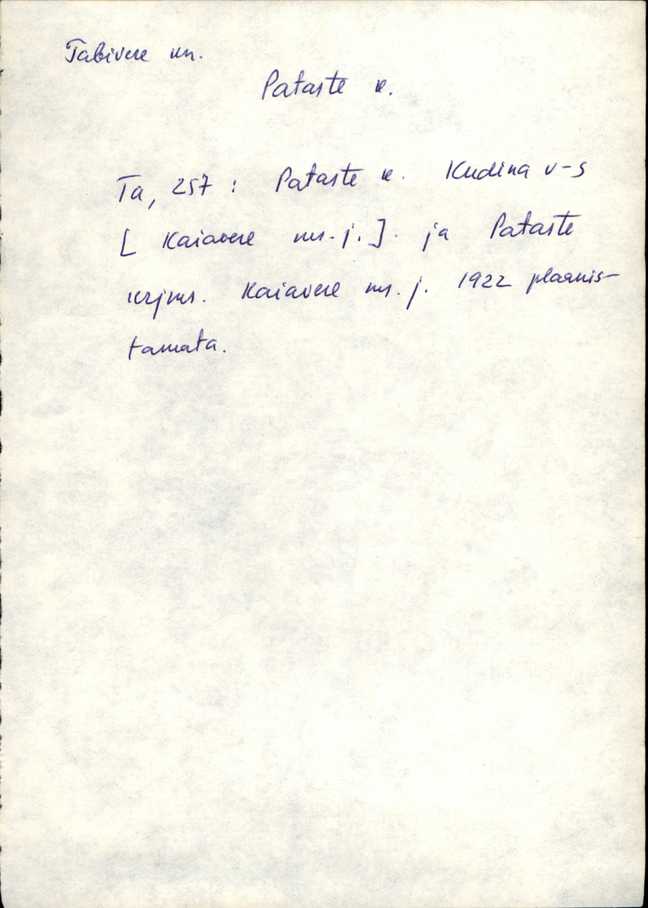 Tabivere kn.
Pataste k.
Ta, 257 : Pataste k. Kudina v-s
[ Kaiavere ms. j. ]. ja Pataste
krjms. Kaiavere ms. j. 1922 plaanis-
tamata.